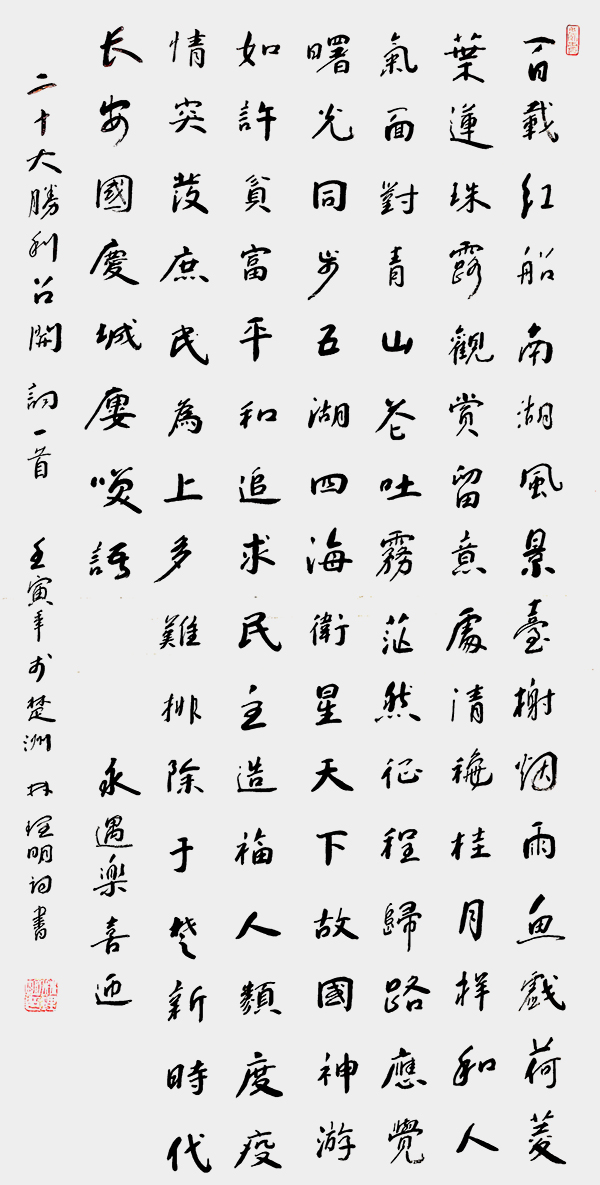 百載紅船南湖風景臺榭烟雨魚戲荷菱
葉蓮珠露觀賞留意處清艳桂月祥和人
氣面對青山花吐霧茫然征程歸路應覺
曙光同步五湖四海衛星天下故國神游
如許貧富平和追求民主造福人類度疫
情突发庶民為上多難排除于楚新時代
長安國慶城慶唤語
永遇樂喜迎
二十大勝利召開詞一首 壬寅年於楚洲 林理明詞書